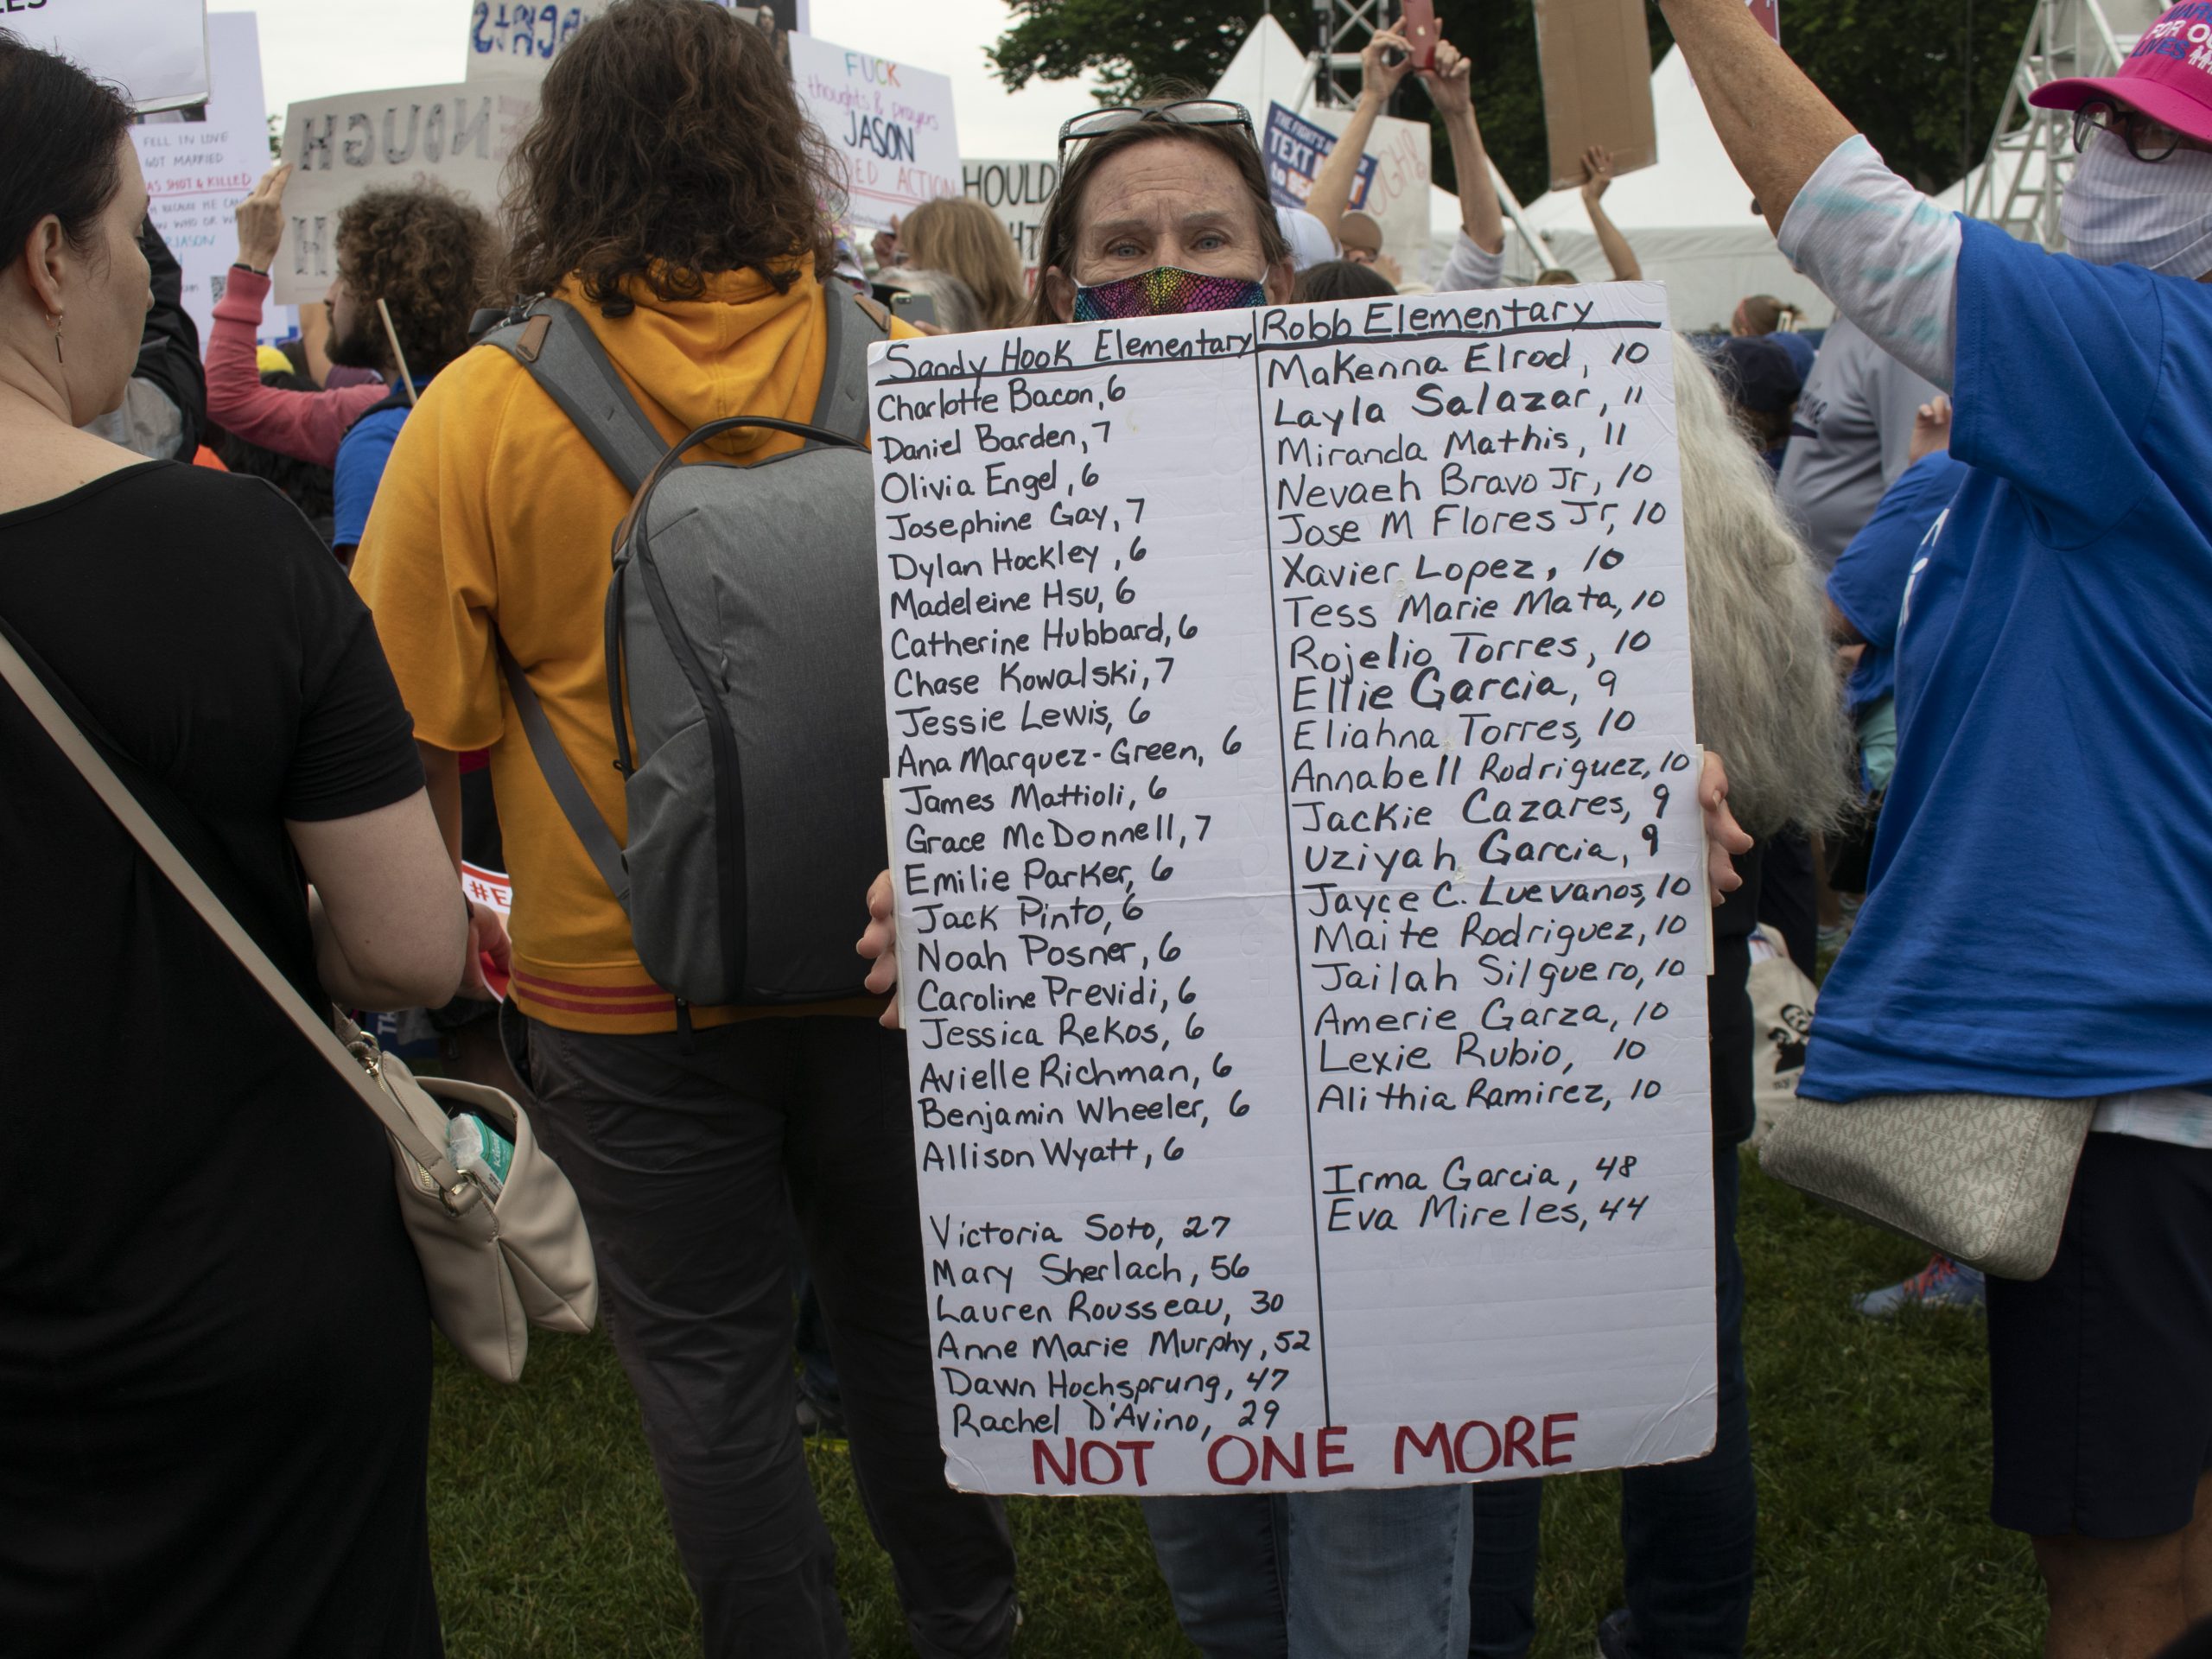 FELL IN LOVE
GOT MARRIED
SHOT & KILLED
ENOUGH
FUCK
thoughts & prayers
JASON
ACTION
THE FIGHT'S
TEXT
to
FOR
LIVES
Sandy Hook Elementary
Charlotte Bacon, 6
Daniel Barden, 7
Olivia Engel, 6
Josephine Gay, 7
Dylan Hockley, 6
Madeleine Hsu, 6
Catherine Hubbard, 6
Chase Kowalski, 7
Jessie Lewis, 6
Ana Marquez-Green, 6
James Mattioli, 6
Grace McDonnell, 7
Emilie Parker, 6
Jack Pinto, 6
Noah Posner, 6
Caroline Previdi, 6
Jessica Rekos, 6
Avielle Richman, 6
Benjamin Wheeler, 6
Allison Wyatt, 6
Victoria Soto, 27
Mary Sherlach, 56
Lauren Rousseau, 30
Anne Marie Murphy, 52
Dawn Hochsprung, 47
Rachel D'Avino, 29
Robb Elementary
Makenna Elrod, 10
Layla Salazar, 11
Miranda Mathis, 11
Nevaeh Bravo Jr, 10
Jose M Flores Jr, 10
Xavier Lopez, 10
Tess Marie Mata, 10
Rojelio Torres, 10
Ellie Garcia, 9
Eliahna Torres, 10
Annabell Rodriguez, 10
Jackie Cazares, 9
Uziyah Garcia, 9
Jayce C. Luevanos, 10
Maite Rodriguez, 10
Jailah Silguero, 10
Amerie Garza, 10
Lexie Rubio, 10
Alithia Ramirez, 10
Irma Garcia, 48
Eva Mireles, 44
NOT ONE MORE